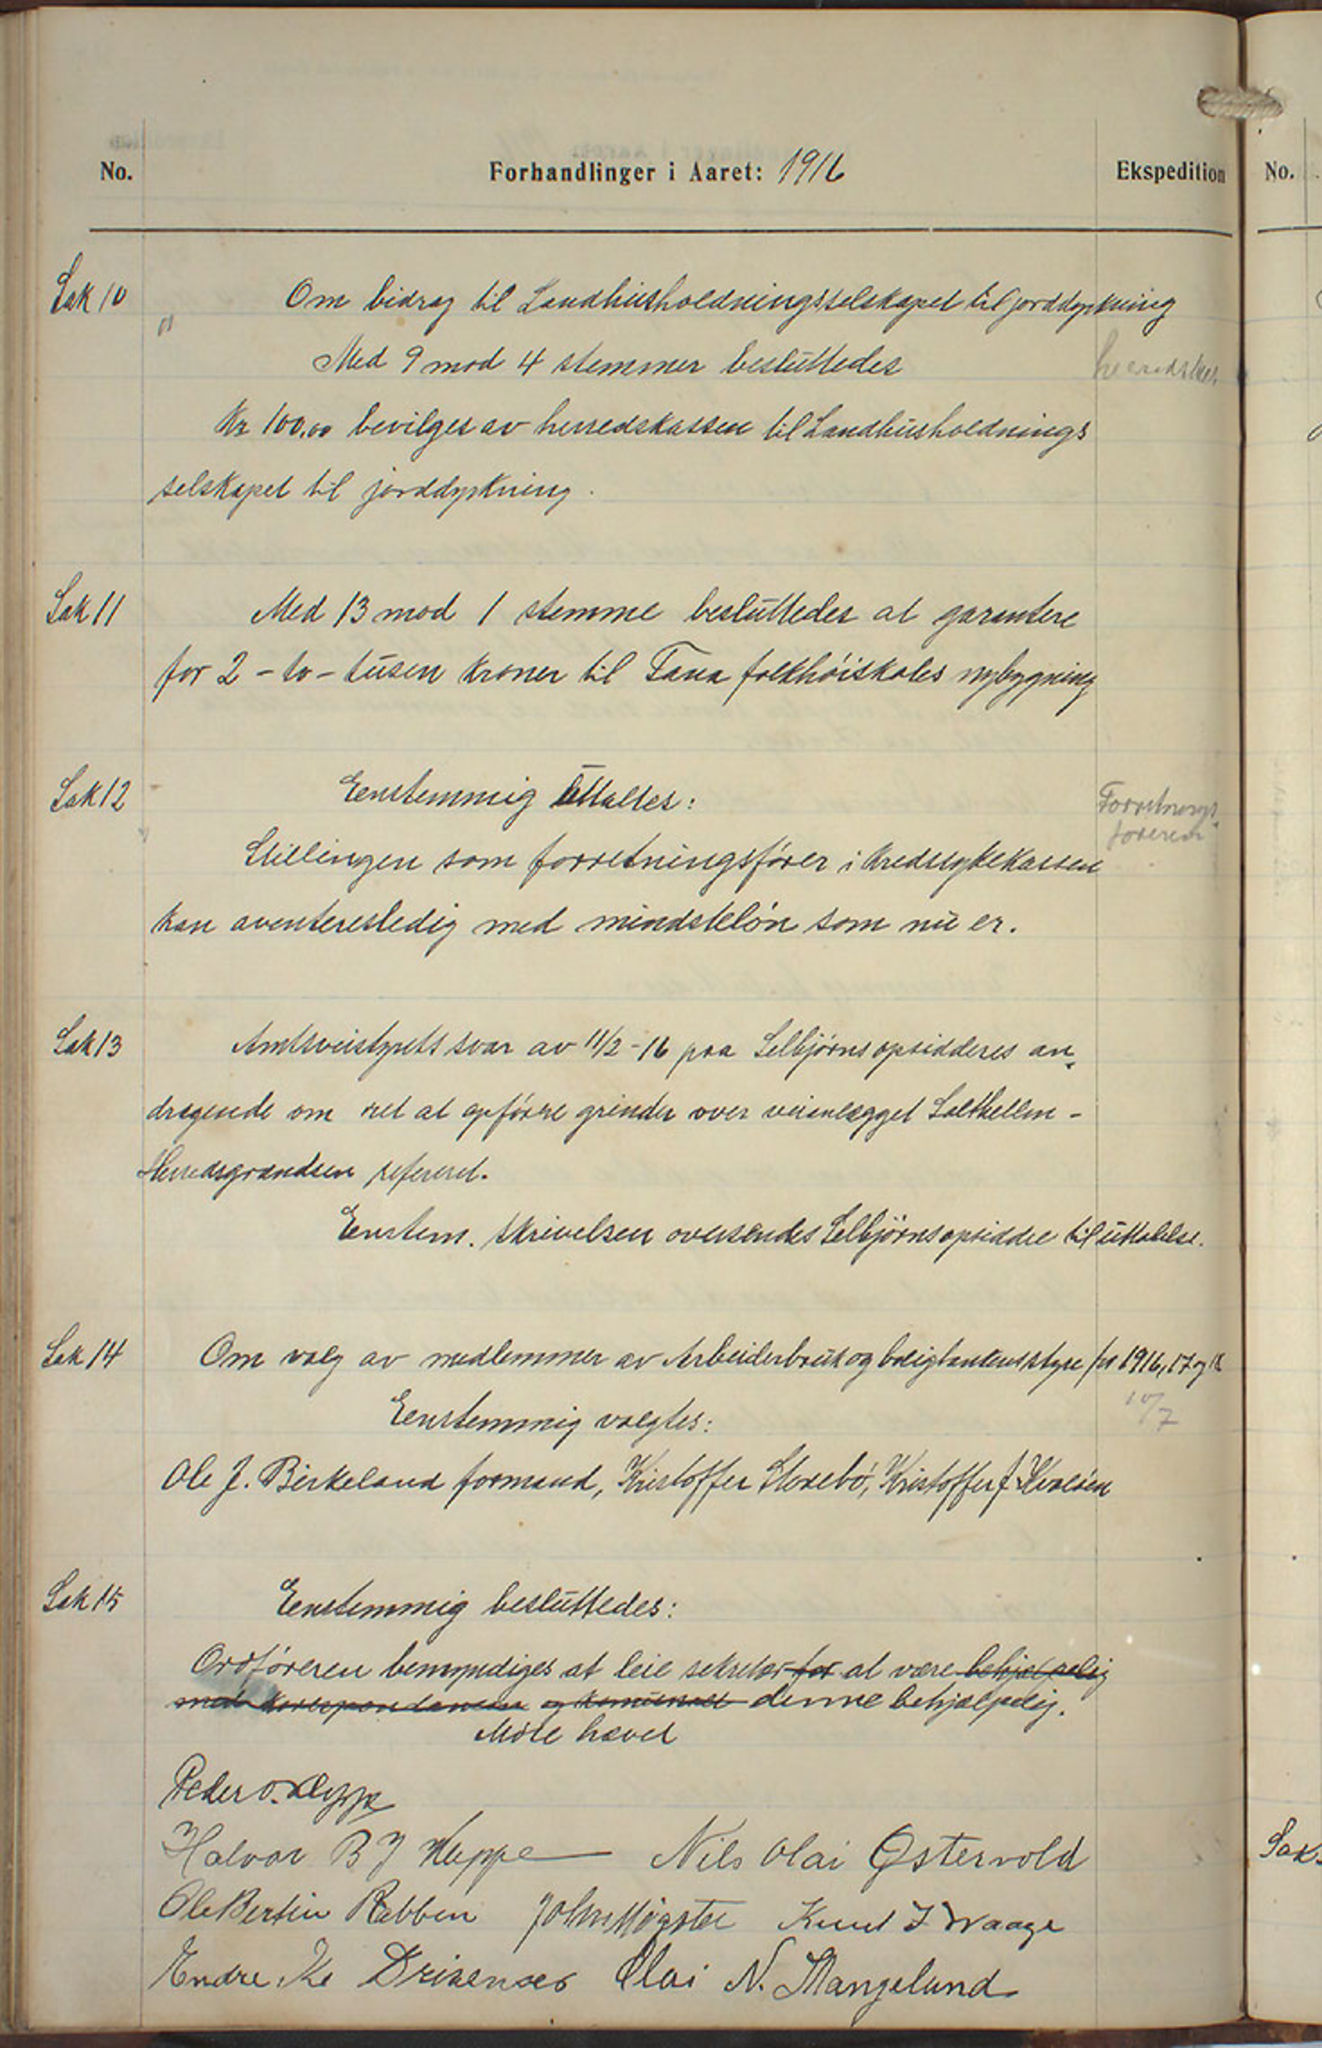 No. Forhandlinger i Aaret: 1916 Ekspedition No.
Sak 10 Om bidrag til Landhusholdningsselskapet til jorddyrkning
"
Med 9 mod 4 stemmer besluttedes
Kr 100,00 bevilges av herredskassen til Landhusholdnings
selskapet til jorddyrkning.
Sak 11 Med 13 mod 1 stemme besluttedes at garantere
for 2 - to - tusen kroner til Fana folkhøiskoles nybygning
Sak 12 Eenstemmig uttaltes: Forretnings-
føreren
Stillingen som forretningsfører i kredssykekassen
kan averteres ledig med mindsteløn som nu er.
Sak 13 Amtsveistyrets svar av 11/2-16 paa Selbjørns opsidderes an-
dragende om ret at opføre grinder over veianlægget Salthellen -
Herredsgrændsen referert.
Enstem. skrivelsen oversendes Selbjørns opsiddere til uttalelse.
Sak 14 Om valg av medlemmer av Arbeiderbruk og boligbankens styre for 1916, 17 og 18
Eenstemmig valgtes:
Ole J. Birkeland formand, Kristoffer Storebø, Kristoffer J
Sak 15 Eenstemmig besluttedes:
Ordføreren bemyndiges at leie sekretær for at være behjelpelig
med korrespondansen og denne behjælpelig.
Møte hævet
Peder O.
Halvor B J Kleppe Nils Olai Østervold
Ole Bertin Rabben John Møgster Knut J Waage
Endre Olai N. Stangeland
Sak